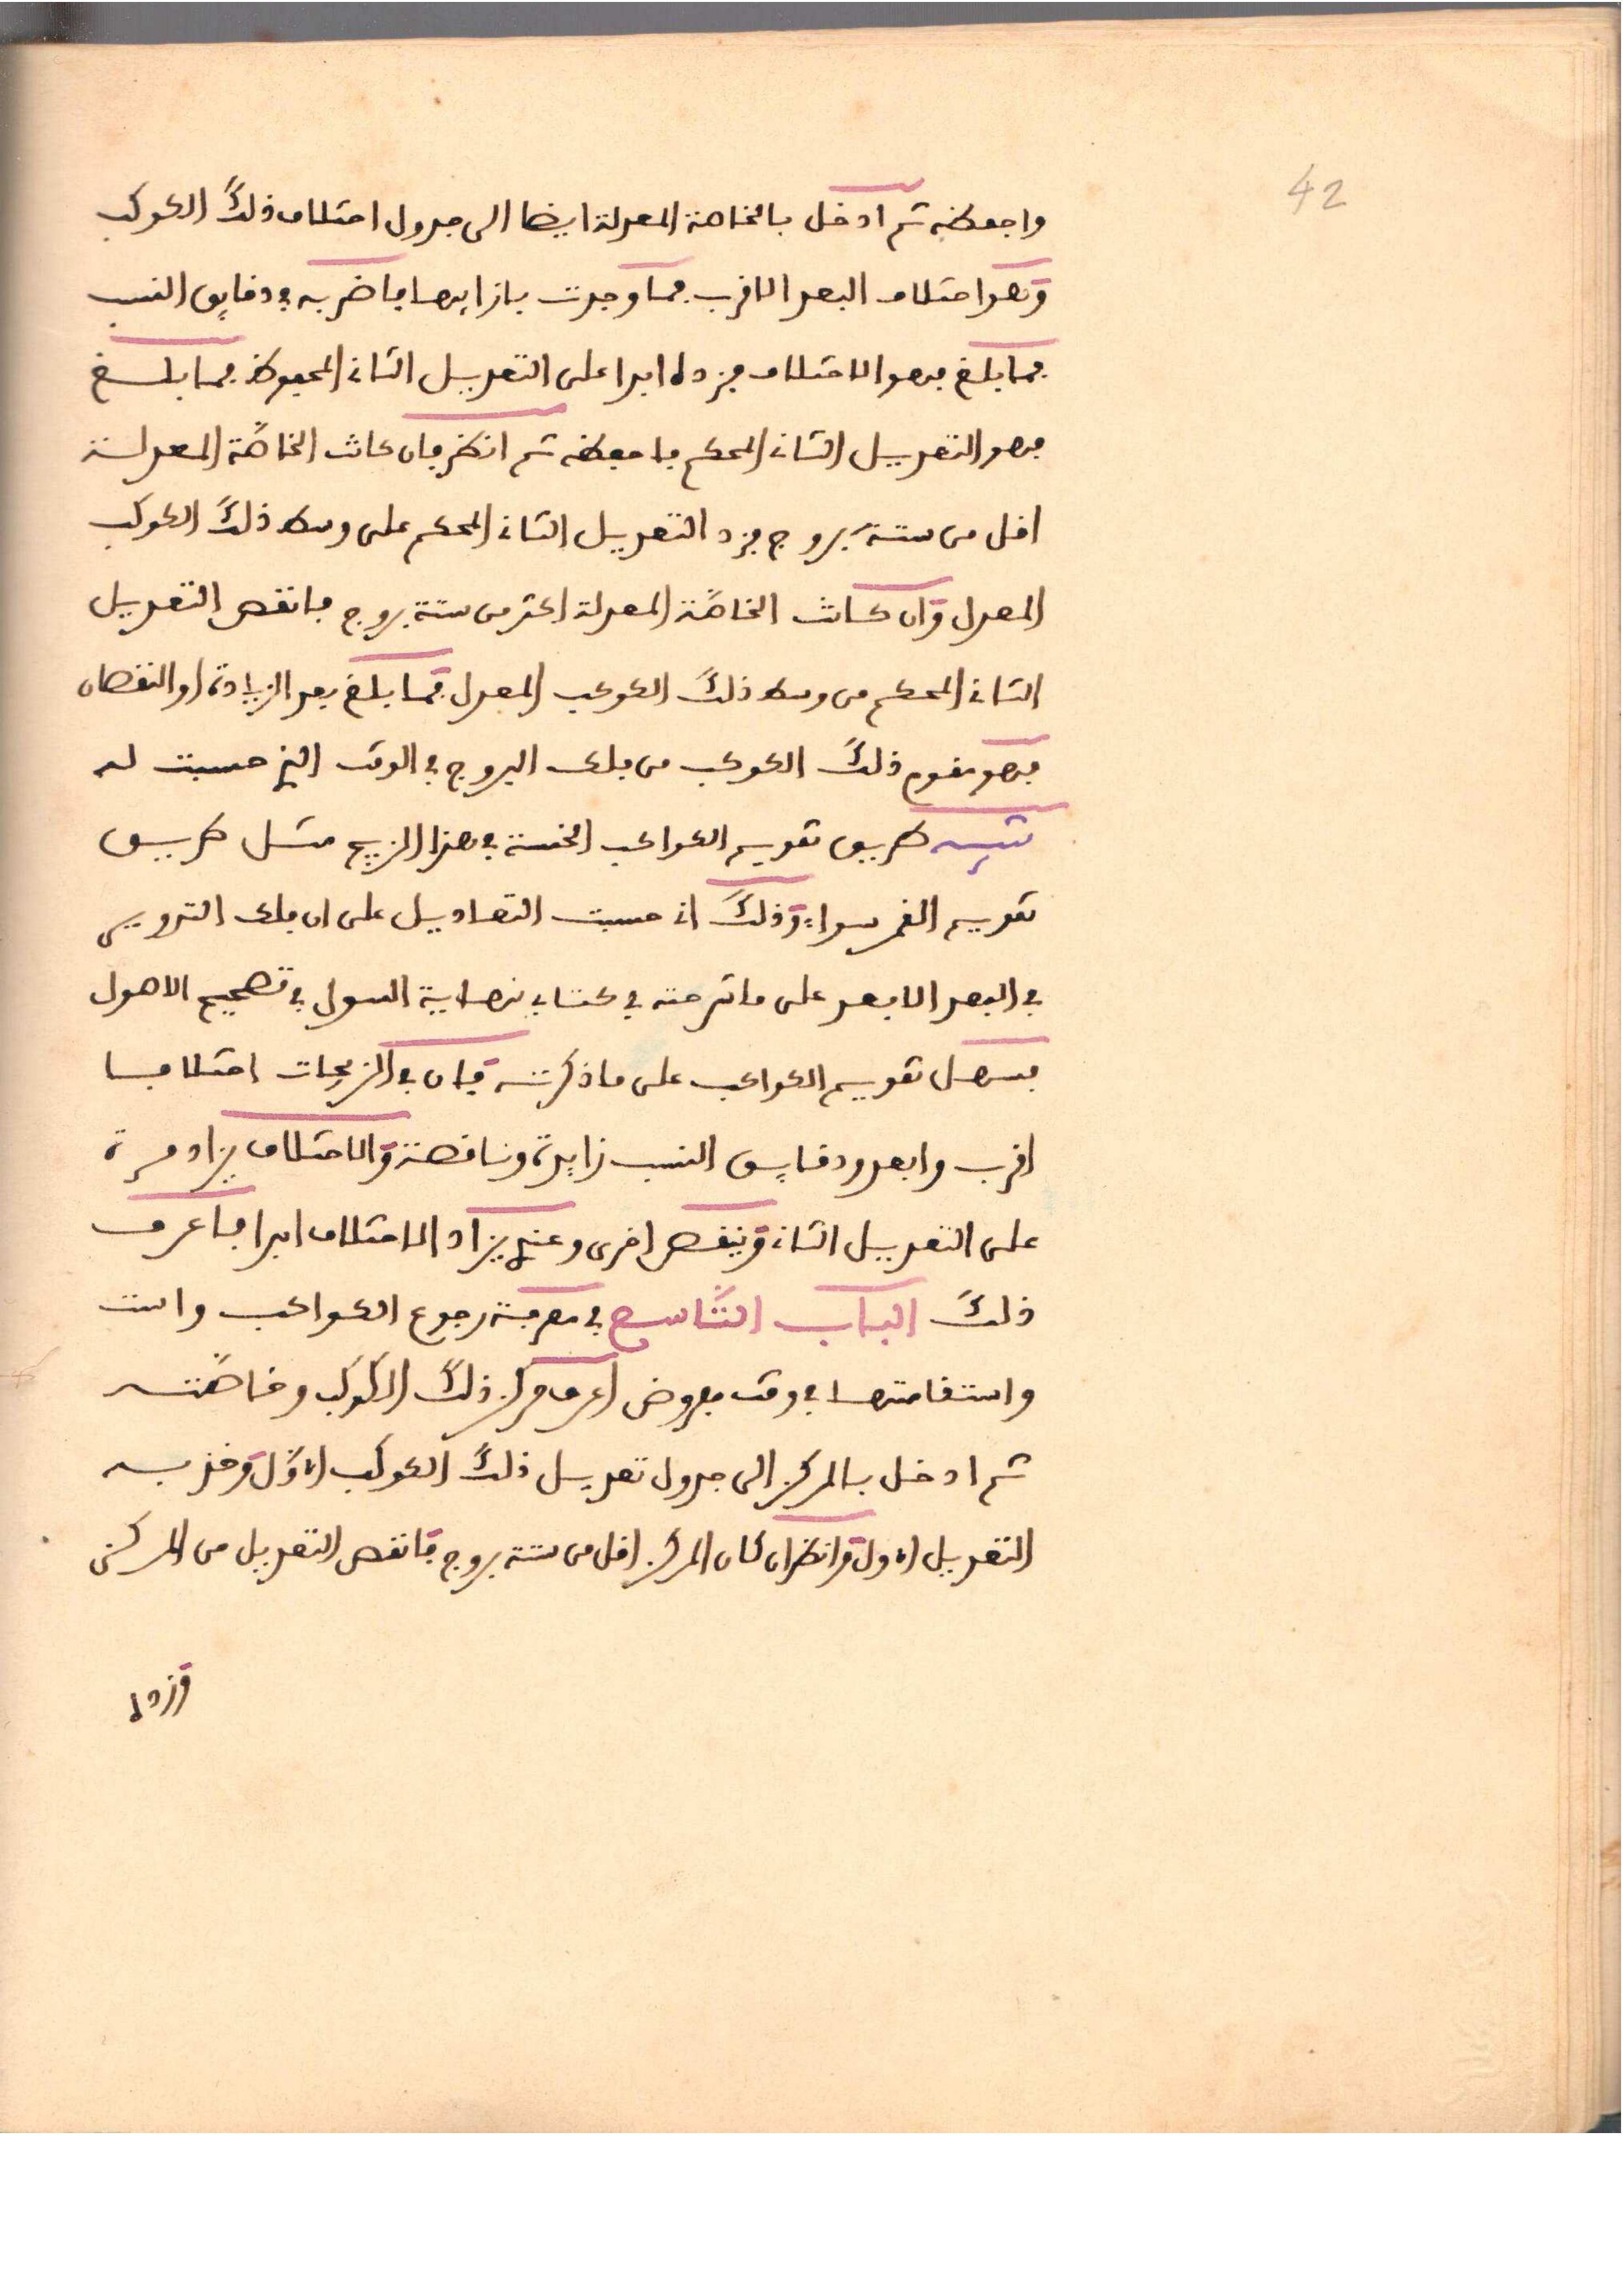 42
واحفظه ثم ادخل بالخاصة المعدلة ايضا الى جدول اختلاف ذلك الكوكب
وهو اختلاف البعد الاقرب فما وجدت بازايها فاضربه في دقايق النسب
فما بلغ فهو الاختلاف فزده ابدا على التعديل الثاني المحفوظ فما بلغ
فهو التعديل الثاني المحكم فاحفظه ثم انظر فان كانت الخاصّة المعدلة
اقل من ستة بروج فزد التعديل الثاني المحكم على وسط ذلك الكوكب
المعدل وان كانت الخاصّة المعدلة اكثر من ستة بروج فانقص التعديل
الثاني المحكم من وسط ذلك الكوكب المعدل فما بلغ بعد الزيادة او النقصان
فهو مقوم ذلك الكوكب من فلك البروج في الوقت الذي حسبت له
تنبيه طريق تقويم الكواكب الخمسة في هذا الزيج مثل طريق
تقويم القمر سواء وذلك اني حسبت التعاديل على ان فلك التدوير
في البعد الابعد على ما شرحته في كتاب نهاية السول في تصحيح الاصول
فسهل تقويم الكواكب على ما ذكرته فان في الزيجات اختلافا
اقرب وابعد ودقايق النسب زايدة وناقصة والاختلاف يزاد مرة
على التعديل الثاني وينقص اخرى وعندي يزاد الاختلاف ابدا فاعرف
ذلك الباب التّاسع في معرفة رجوع الكواكب واست
واستقامتها في وقت مفروض اعرف مركز ذلك الكوكب وخاصّته
ثم ادخل بالمركز الى جدول تعديل ذلك الكوكب الاوّل وخذ به
التعديل الاول وانظر ان كان المركز اقل من ستة بروج فانقص التعديل من المركز
وزده